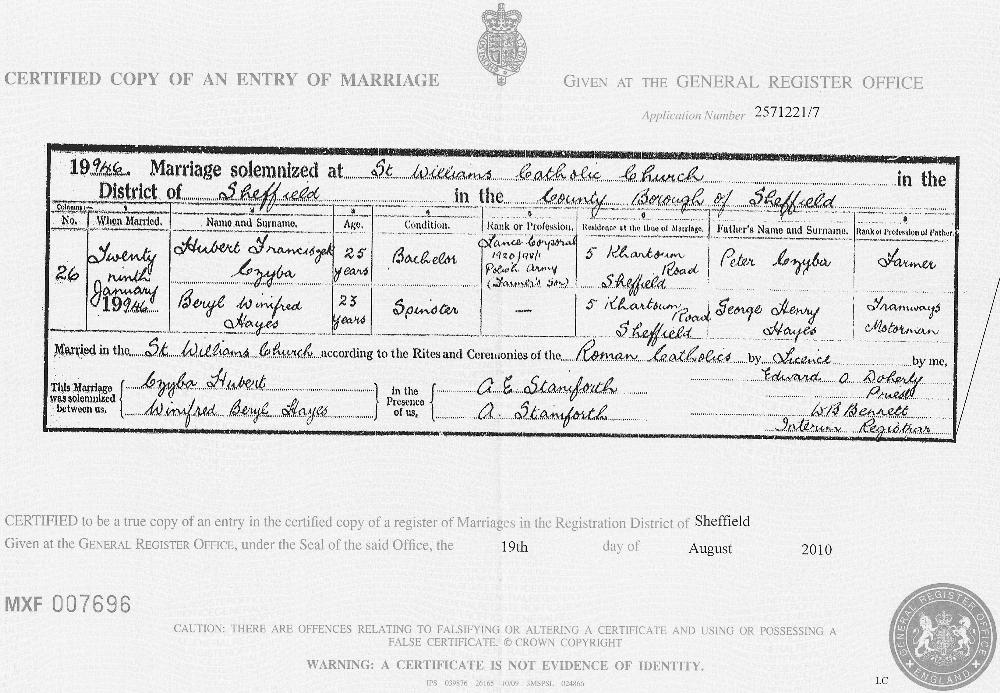 CERTIFIED COPY OF AN ENTRY OF MARRIAGE
GIVEN AT THE GENERAL REGISTER OFFICE
Application Number 2571221/7
1946. Marriage solemnized at St Williams Catholic Church in the
District of Sheffield in the County Borough of Sheffield
Columns:—
No. When Married. Name and Surname. Age. Condition. Rank or Profession. Residence at the time of Marriage. Father's Name and Surname. Rank or Profession of Father
26
Twenty
ninth
January
1946
Hubert Franciszek
Czyba
25
years
Bachelor
Lance Corporal
Polish Army
(Farmer's Son)
5 Khartoum
Road
Sheffield
Peter Czyba
Farmer
Beryl Winifred
Hayes
23
years
Spinster
—
5 Khartoum
Road
Sheffield
George Henry
Hayes
Tramways
Motorman
Married in the St Williams Church according to the Rites and Ceremonies of the Roman Catholics by Licence by me,
This Marriage
was solemnized
between us,
Czyba Hubert
Winifred Beryl Hayes
in the
Presence
of us,
A E Staniforth
A. Staniforth
Edward O Doherty
Priest
W B Bennett
Interim Registrar
CERTIFIED to be a true copy of an entry in the certified copy of a register of Marriages in the Registration District of Sheffield
Given at the GENERAL REGISTER OFFICE, under the Seal of the said Office, the 19th day of August 2010
MXF 007696
CAUTION: THERE ARE OFFENCES RELATING TO FALSIFYING OR ALTERING A CERTIFICATE AND USING OR POSSESSING A
FALSE CERTIFICATE. © CROWN COPYRIGHT
WARNING: A CERTIFICATE IS NOT EVIDENCE OF IDENTITY.
IPS 039876 26165 10/09 3MSPSL 024866
LC
GENERAL REGISTER OFFICE
ENGLAND